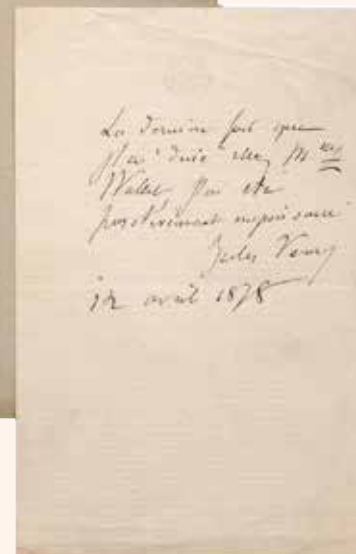 La dernière fois que
j'ai dîné chez M
Wallet j'ai été
positivement empoisonné
Jules Verne
12 avril 1878